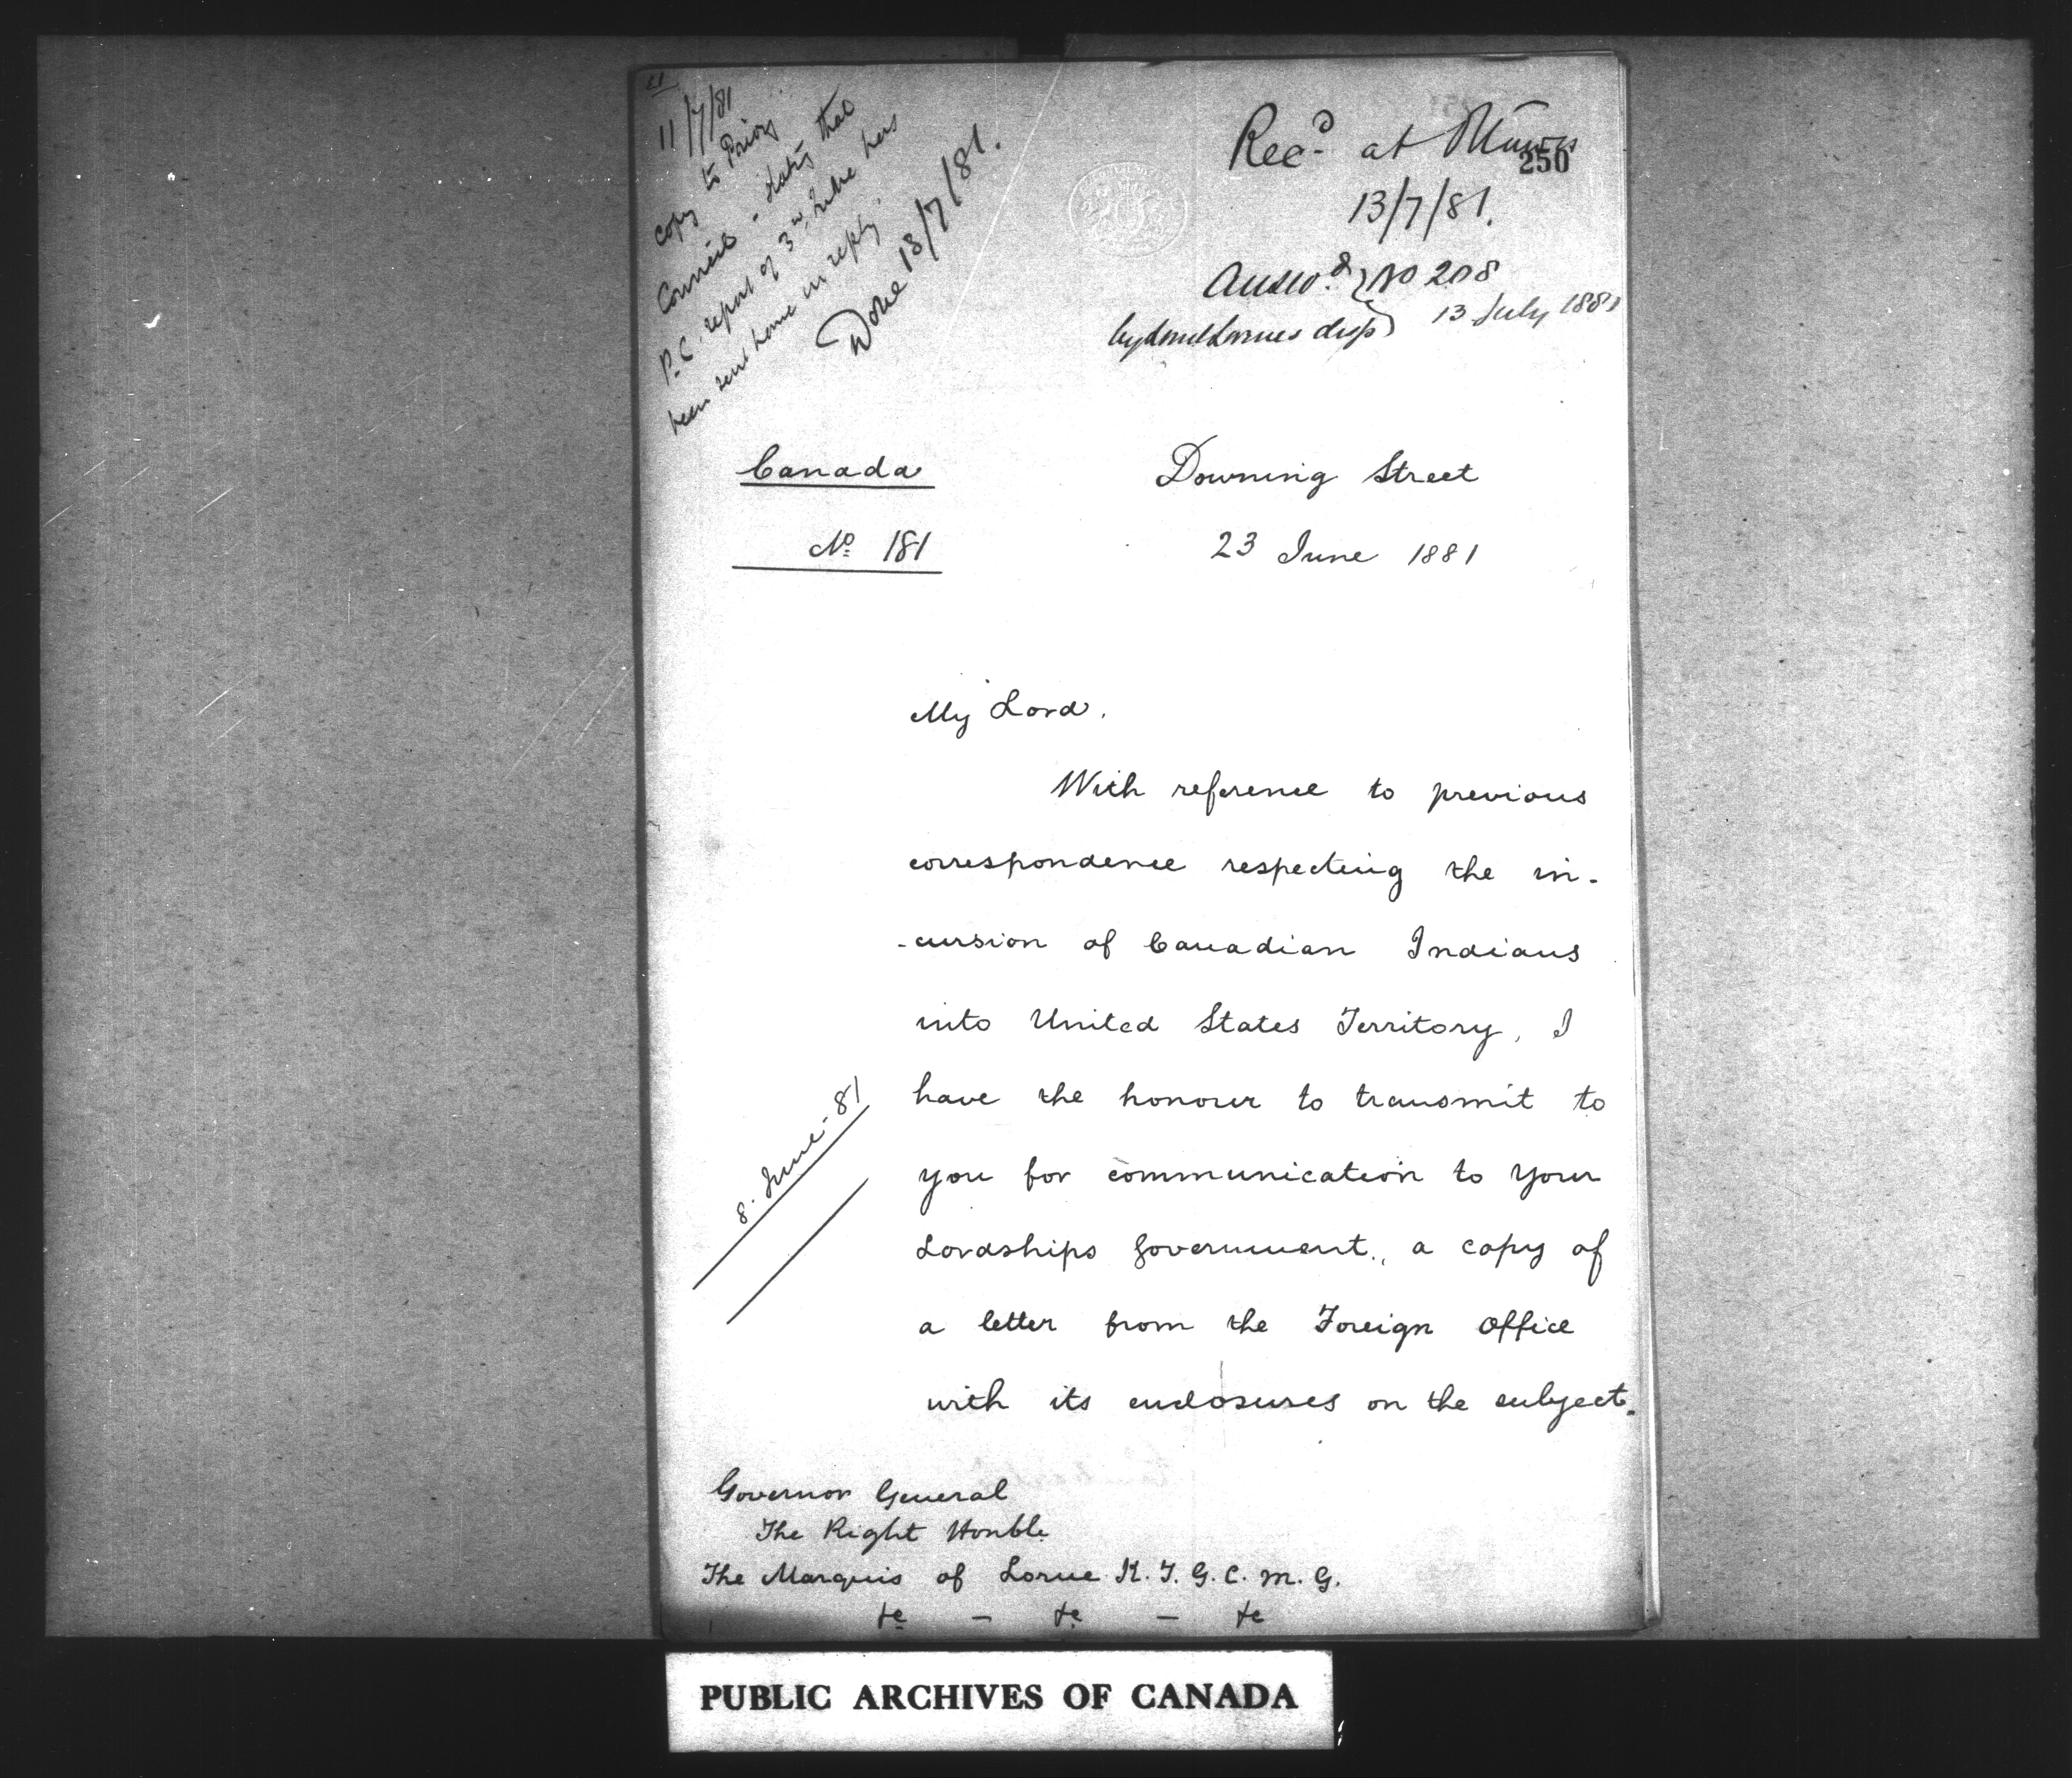 11/7/81
copy to Privy
Council - stating that
P.C. report of 3rd has
been sent home in reply.
Done 13/7/81.
Recd at
250
13/7/81.
Answd } No 208
by Lord Lornes disp } 13 July 1881
Canada
No 181
Downing Street
23 June 1881
My Lord,
With reference to previous
correspondence respecting the in-
-cursion of Canadian Indians
into United States Territory, I
have the honour to transmit to
you for communication to your
Lordships Government, a copy of
a letter from the Foreign Office
with its enclosures on the subject.
8. June - 81
Governor General
The Right Honble
The Marquis of Lorne K.T. G.C.M.G.
&c - &c - &c
PUBLIC ARCHIVES OF CANADA